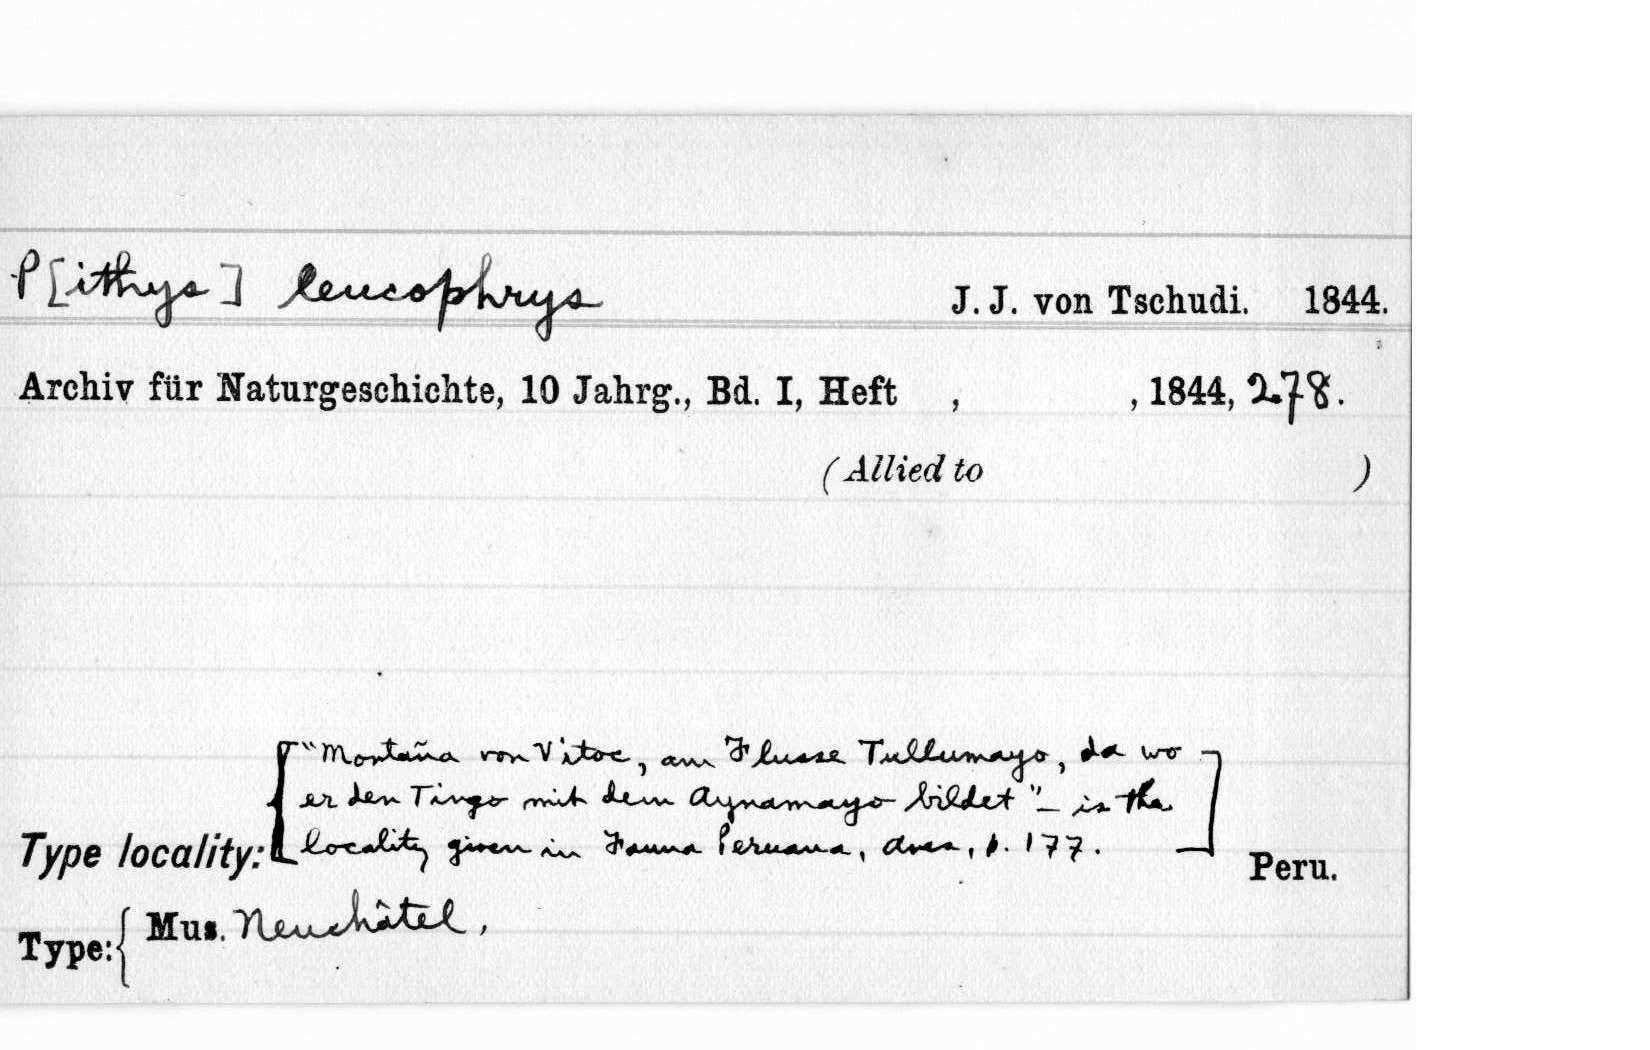 P[ithys] leucophrys J. J. von Tschudi. 1844.
Archiv für Naturgeschichte, 10 Jahrg., Bd. I, Heft , , 1844, 278.
(Allied to )
["Montaña von Vitoc, am Flusse Tullumayo, da wo
er den Tingo mit dem Aynamayo bildet" – is the
Type locality: locality given in Fauna Peruana, Aves, p. 177.] Peru.
Type: { Mus. Neuchâtel.